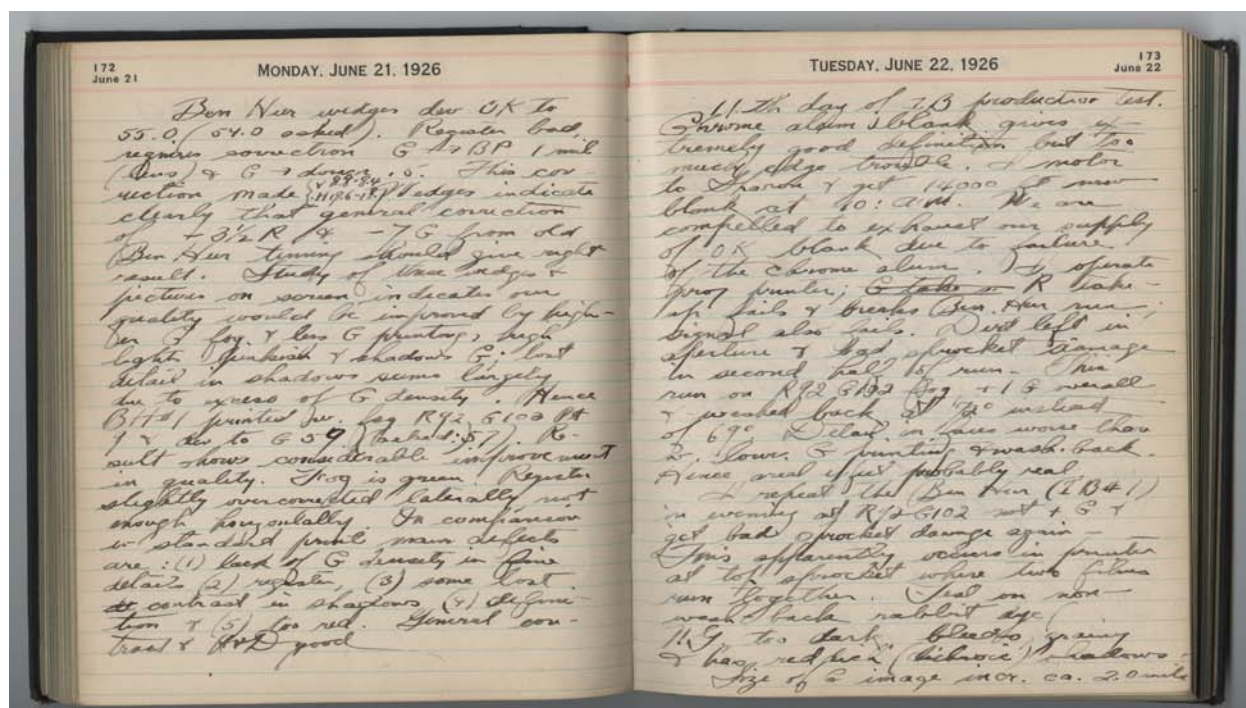 172
June 21
MONDAY, JUNE 21, 1926
Ben Hur wedges dev OK to
55.0 (54.0 asked). Register bad,
requires correction G → BP 1 mil
(lens) & G → down .5. This cor-
rection made Wedges indicate
clearly that general correction
of + 3½ R / & - 7 G from old
Ben Hur timing should give right
result. Study of these wedges &
pictures on screen indicates our
quality would be improved by high-
er G fog & less G printing, high
lights pinkish & shadows G; lost
detail in shadows seems largely
due to excess of G density. Hence
BH#1 printed fog R92 G102
9 & dev to G 59 (asked: 57). Re-
sult shows considerable improvement
in quality. Fog is green. Register
slightly overcorrected laterally not
enough horizontally. In comparison
standard print main defects
are: (1) lack of G density in fine
details (2) register, (3) some lost
contrast in shadows (4) defini-
tion & (5) too red. General con-
trast & good
173
June 22
TUESDAY, JUNE 22, 1926
11th day of I.B production test.
Chrome alum blank gives ex-
tremely good definition but too
much edge trouble. I motor
to Sharon & get 14000 ft new
blank at 10: a.m. We are
compelled to exhaust our supply
of OK blank due to failure
of the chrome alum. I operate
proj printer; G take R take-
up fails & breaks Ben Hur run;
signal also fails. Dirt left in
aperture & bad sprocket damage
in second half of run. This
run on R92 G102 fog + 1 G overall
& washed back at 72° instead
of 69° Detail in faces worse than
lower G printing & wash-back.
Hence areal effect probably real
I repeat the Ben Hur (IB#1)
in evening at R92 G102 + G &
get bad sprocket damage again -
This apparently occurs in printer
at top sprocket where two films
run together. Test on non-
wash back rabbit dye
11.G too dark, bleeds, grainy
& has red pink shadows.
Size of G image incr. ca. 2.0 mils